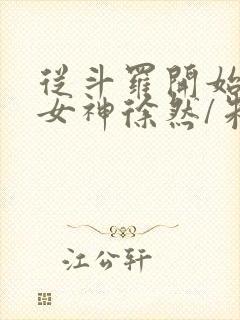 從斗羅開始
女神徐然/
江公轩